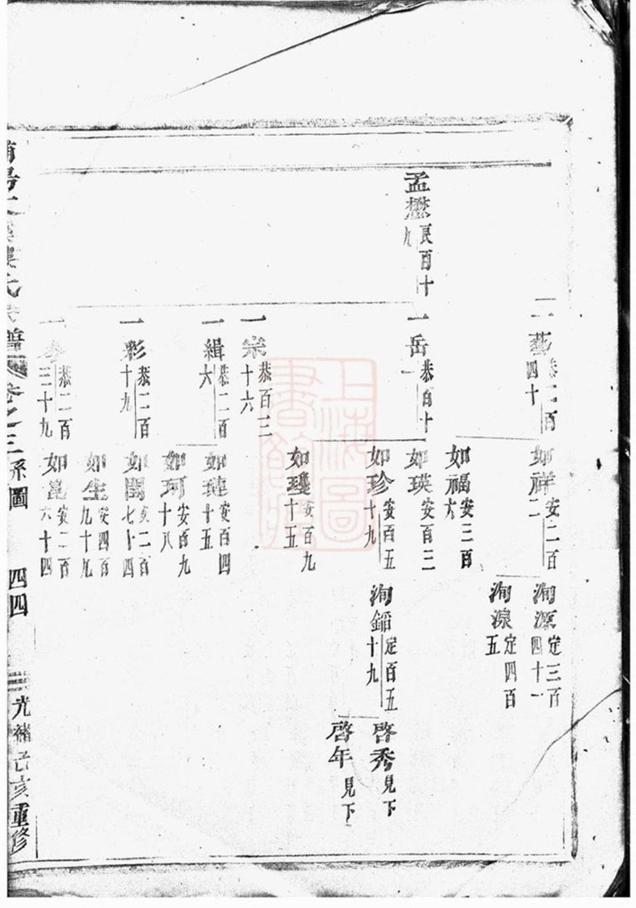 孟懋 良百十九
一藝 恭二百四十
如祥 安二百二
洵源 定三百四十一
洵湶 定四百五
如福 安三百六
一岳 恭百十一
如瑛 安百三
如珍 安百五十九
洵錦 定百五十九
啓秀 見下
啓年 見下
如璂 安百九十五
一宗 恭百三十六
一緝 恭二百六
如璉 安百四十五
如珂 安百九十八
一彩 恭二百十九
如閏 安二百七十四
如生 安四百九十九
一 恭二百三十九
如崑 安二百六十四
氏宗譜 卷之三 系圖 四四 光緒己亥重修
上海圖書館藏